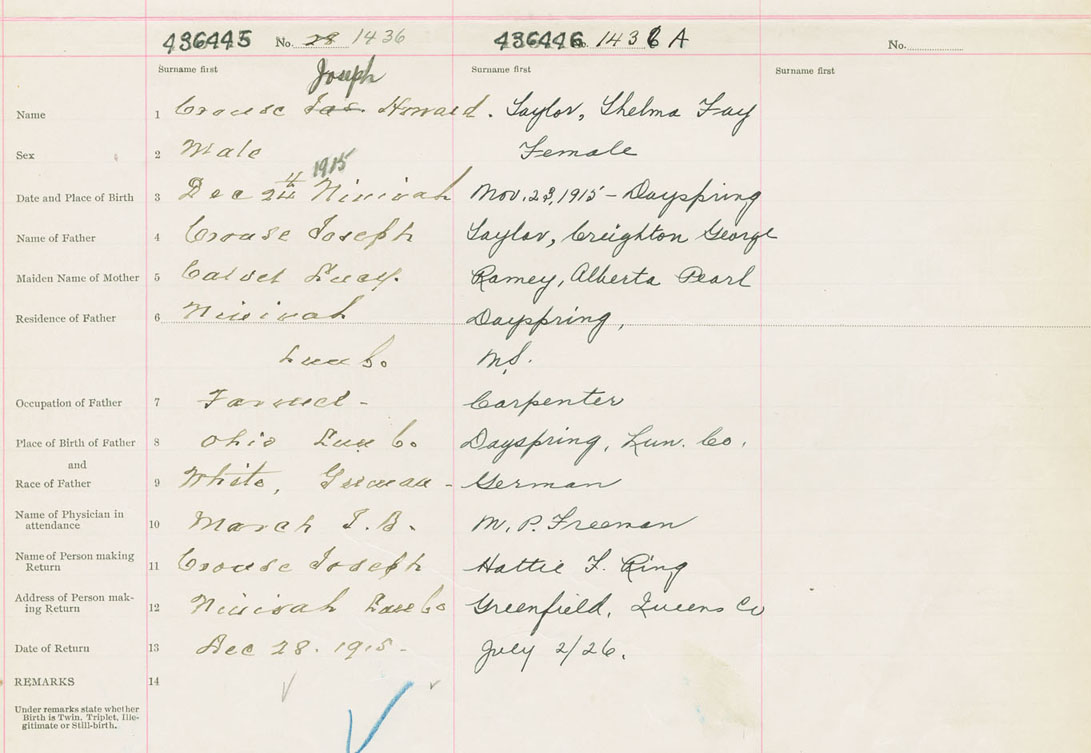 436445 No. 28 1436 436446 No. 1436 A No.
Surname first Joseph Surname first Surname first
Name 1 Crouse Jas. Howard. Saylor, Thelma Fay
Sex 2 Male Female
1915
Date and Place of Birth 3 Dec 24th Ninivah Nov. 23, 1915 - Dayspring
Name of Father 4 Crouse Joseph Saylor, Creighton George
Maiden Name of Mother 5 Lucy. Ramey, Alberta Pearl
Residence of Father 6 Ninivah Dayspring,
Lun Co. N.S.
Occupation of Father 7 Farmer - Carpenter
Place of Birth of Father 8 Ohio Lun Co. Dayspring, Lun. Co.
and
Race of Father 9 White, German - German
Name of Physician in attendance 10 March I. B. M. P. Freeman
Name of Person making Return 11 Crouse Joseph Hattie F. Ring
Address of Person making Return 12 Ninivah Lun Co Greenfield, Queens Co
Date of Return 13 Dec 28. 1915- July 2/26.
REMARKS 14
Under remarks state whether
Birth is Twin. Triplet, Ille-
gitimate or Still-birth.